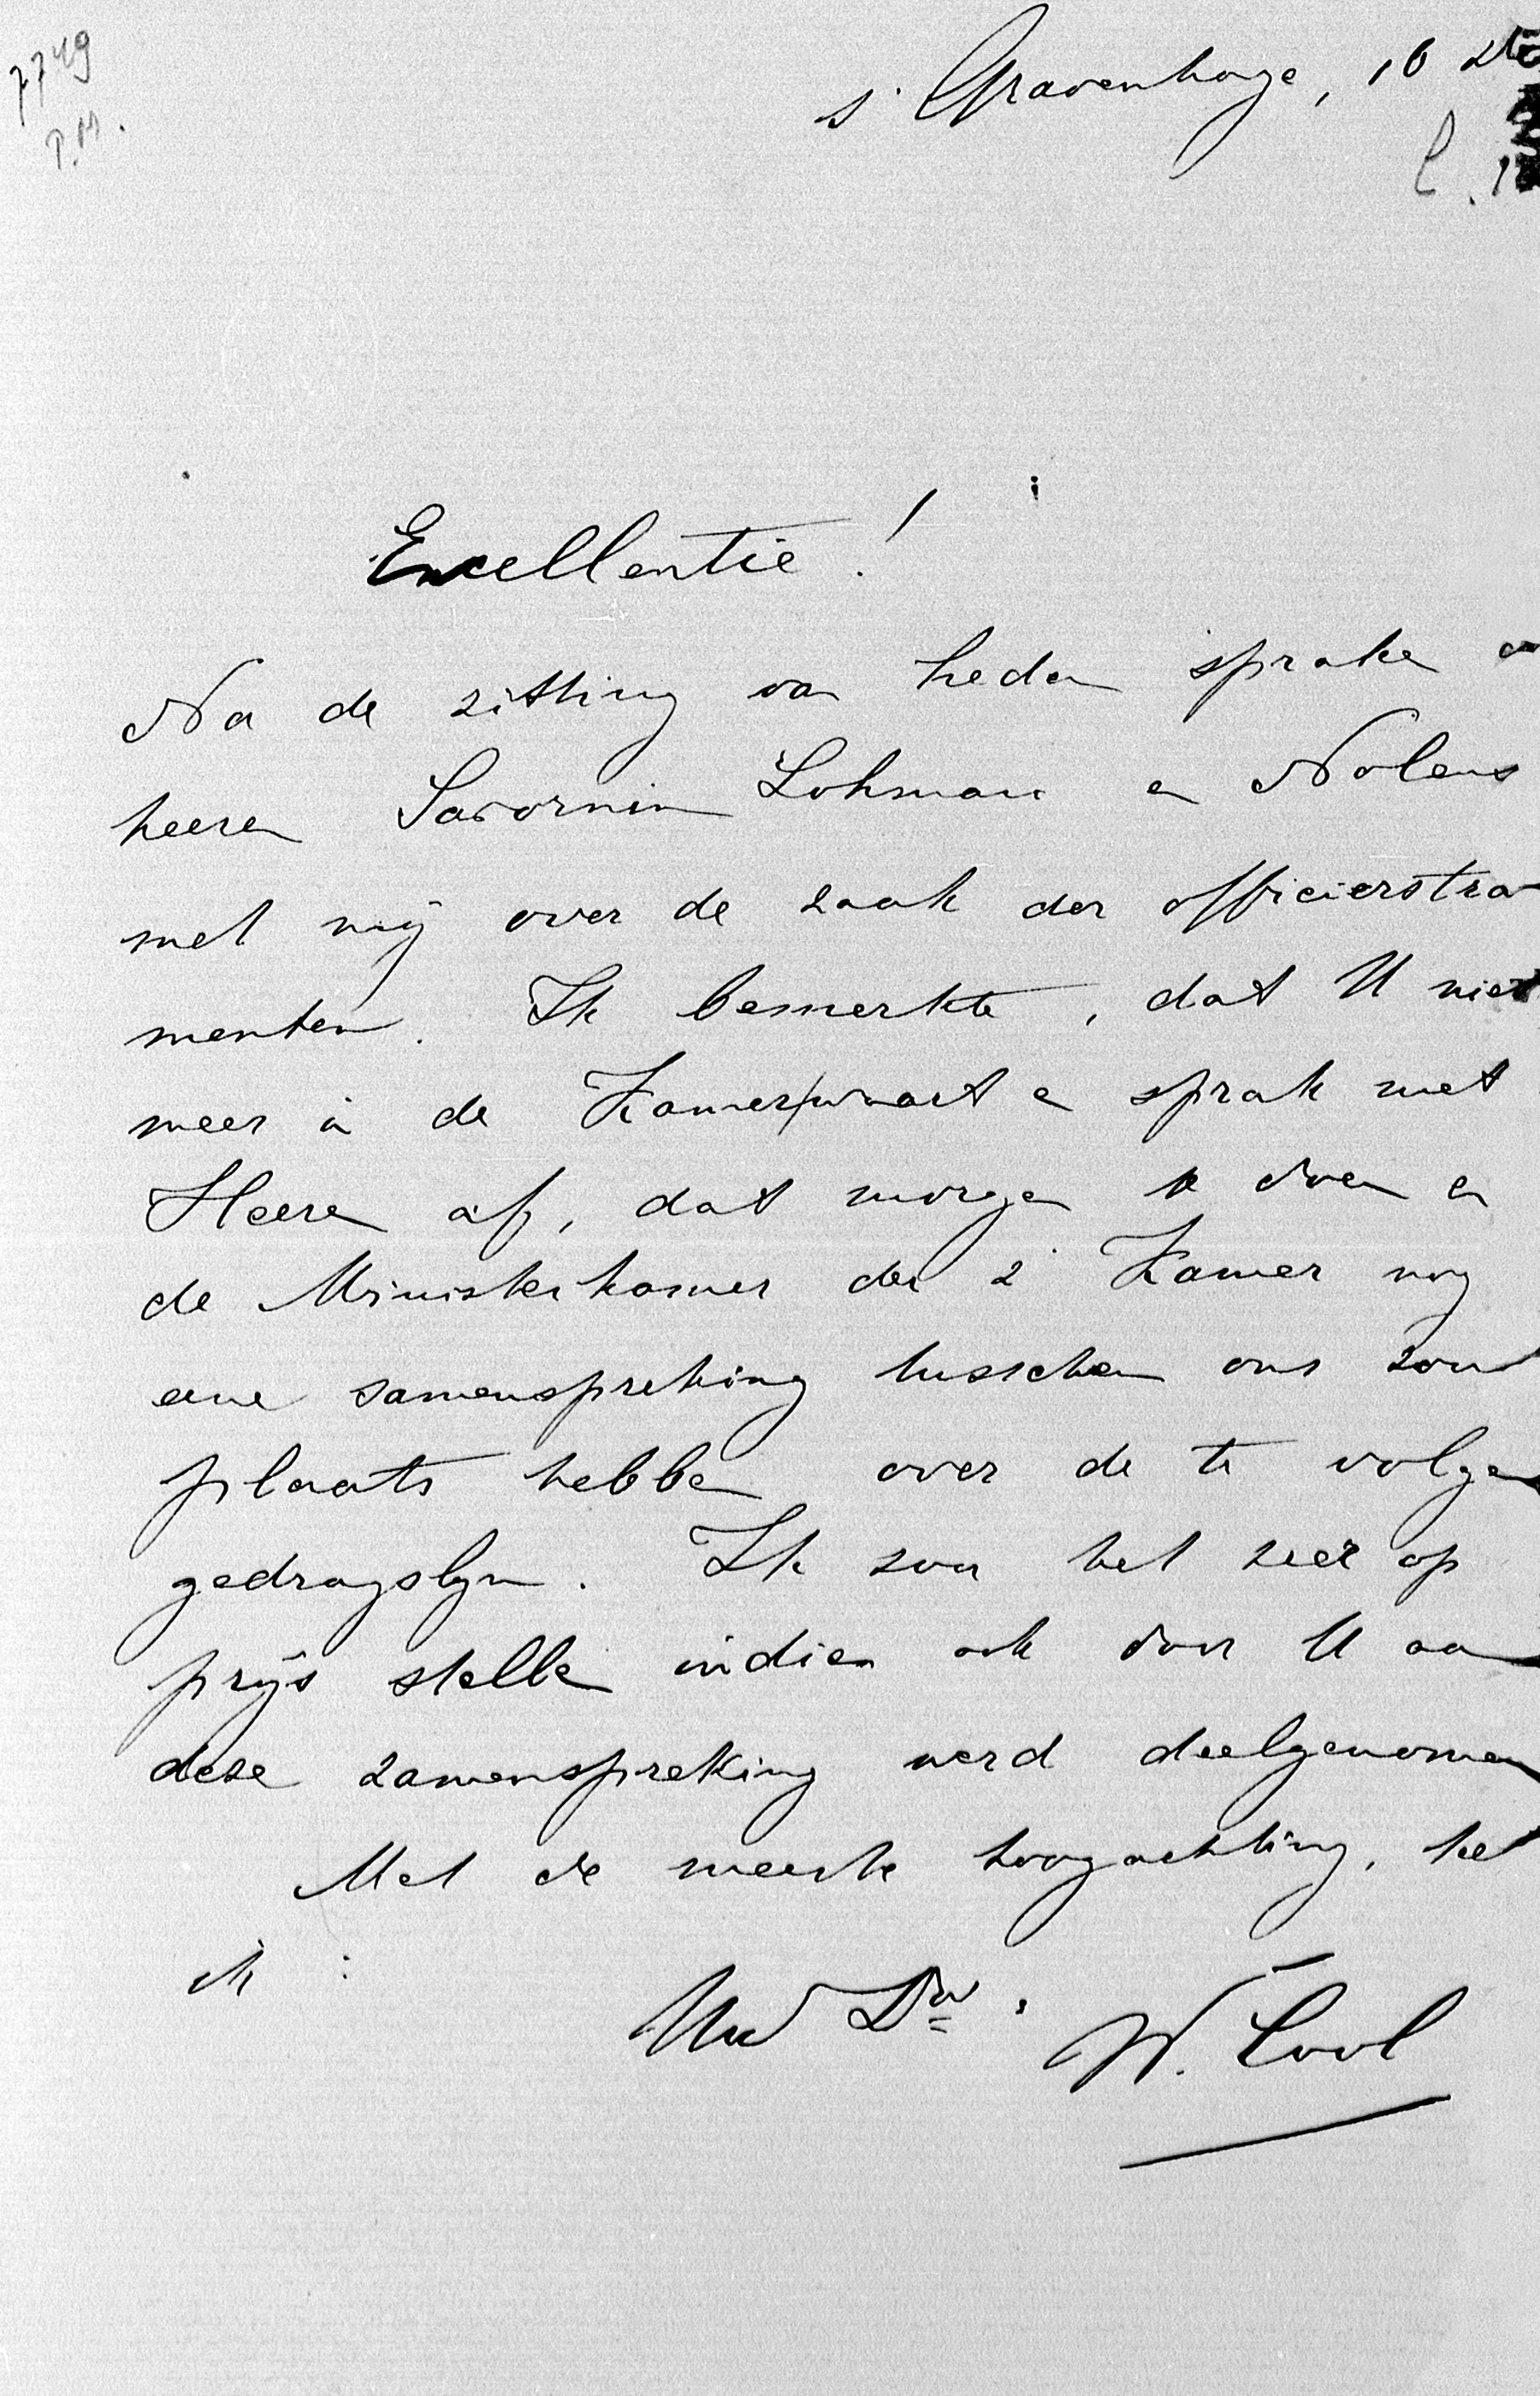 7749
P.M.
s' Gravenhage, 16
Excellentie!
Na de zitting van heden spraken
heeren Savornin Lohman en Nolens
met mij over de zaak der officierstra
menten. Ik bemerkte, dat U niet
meer in de Kamer waart en sprak met
Heeren af, dat morgen te voren in
de Ministerkamer der 2e Kamer nog
eene samenspreking tusschen ons zou
plaats hebben over de te volgen
gedragslijn. Ik zou het zeer op
prijs stellen indien ook door U aan
deze zamenspreking werd deelgenomen
Met de meeste hoogachting, heb
ik :
Uw Dw. W. Cool